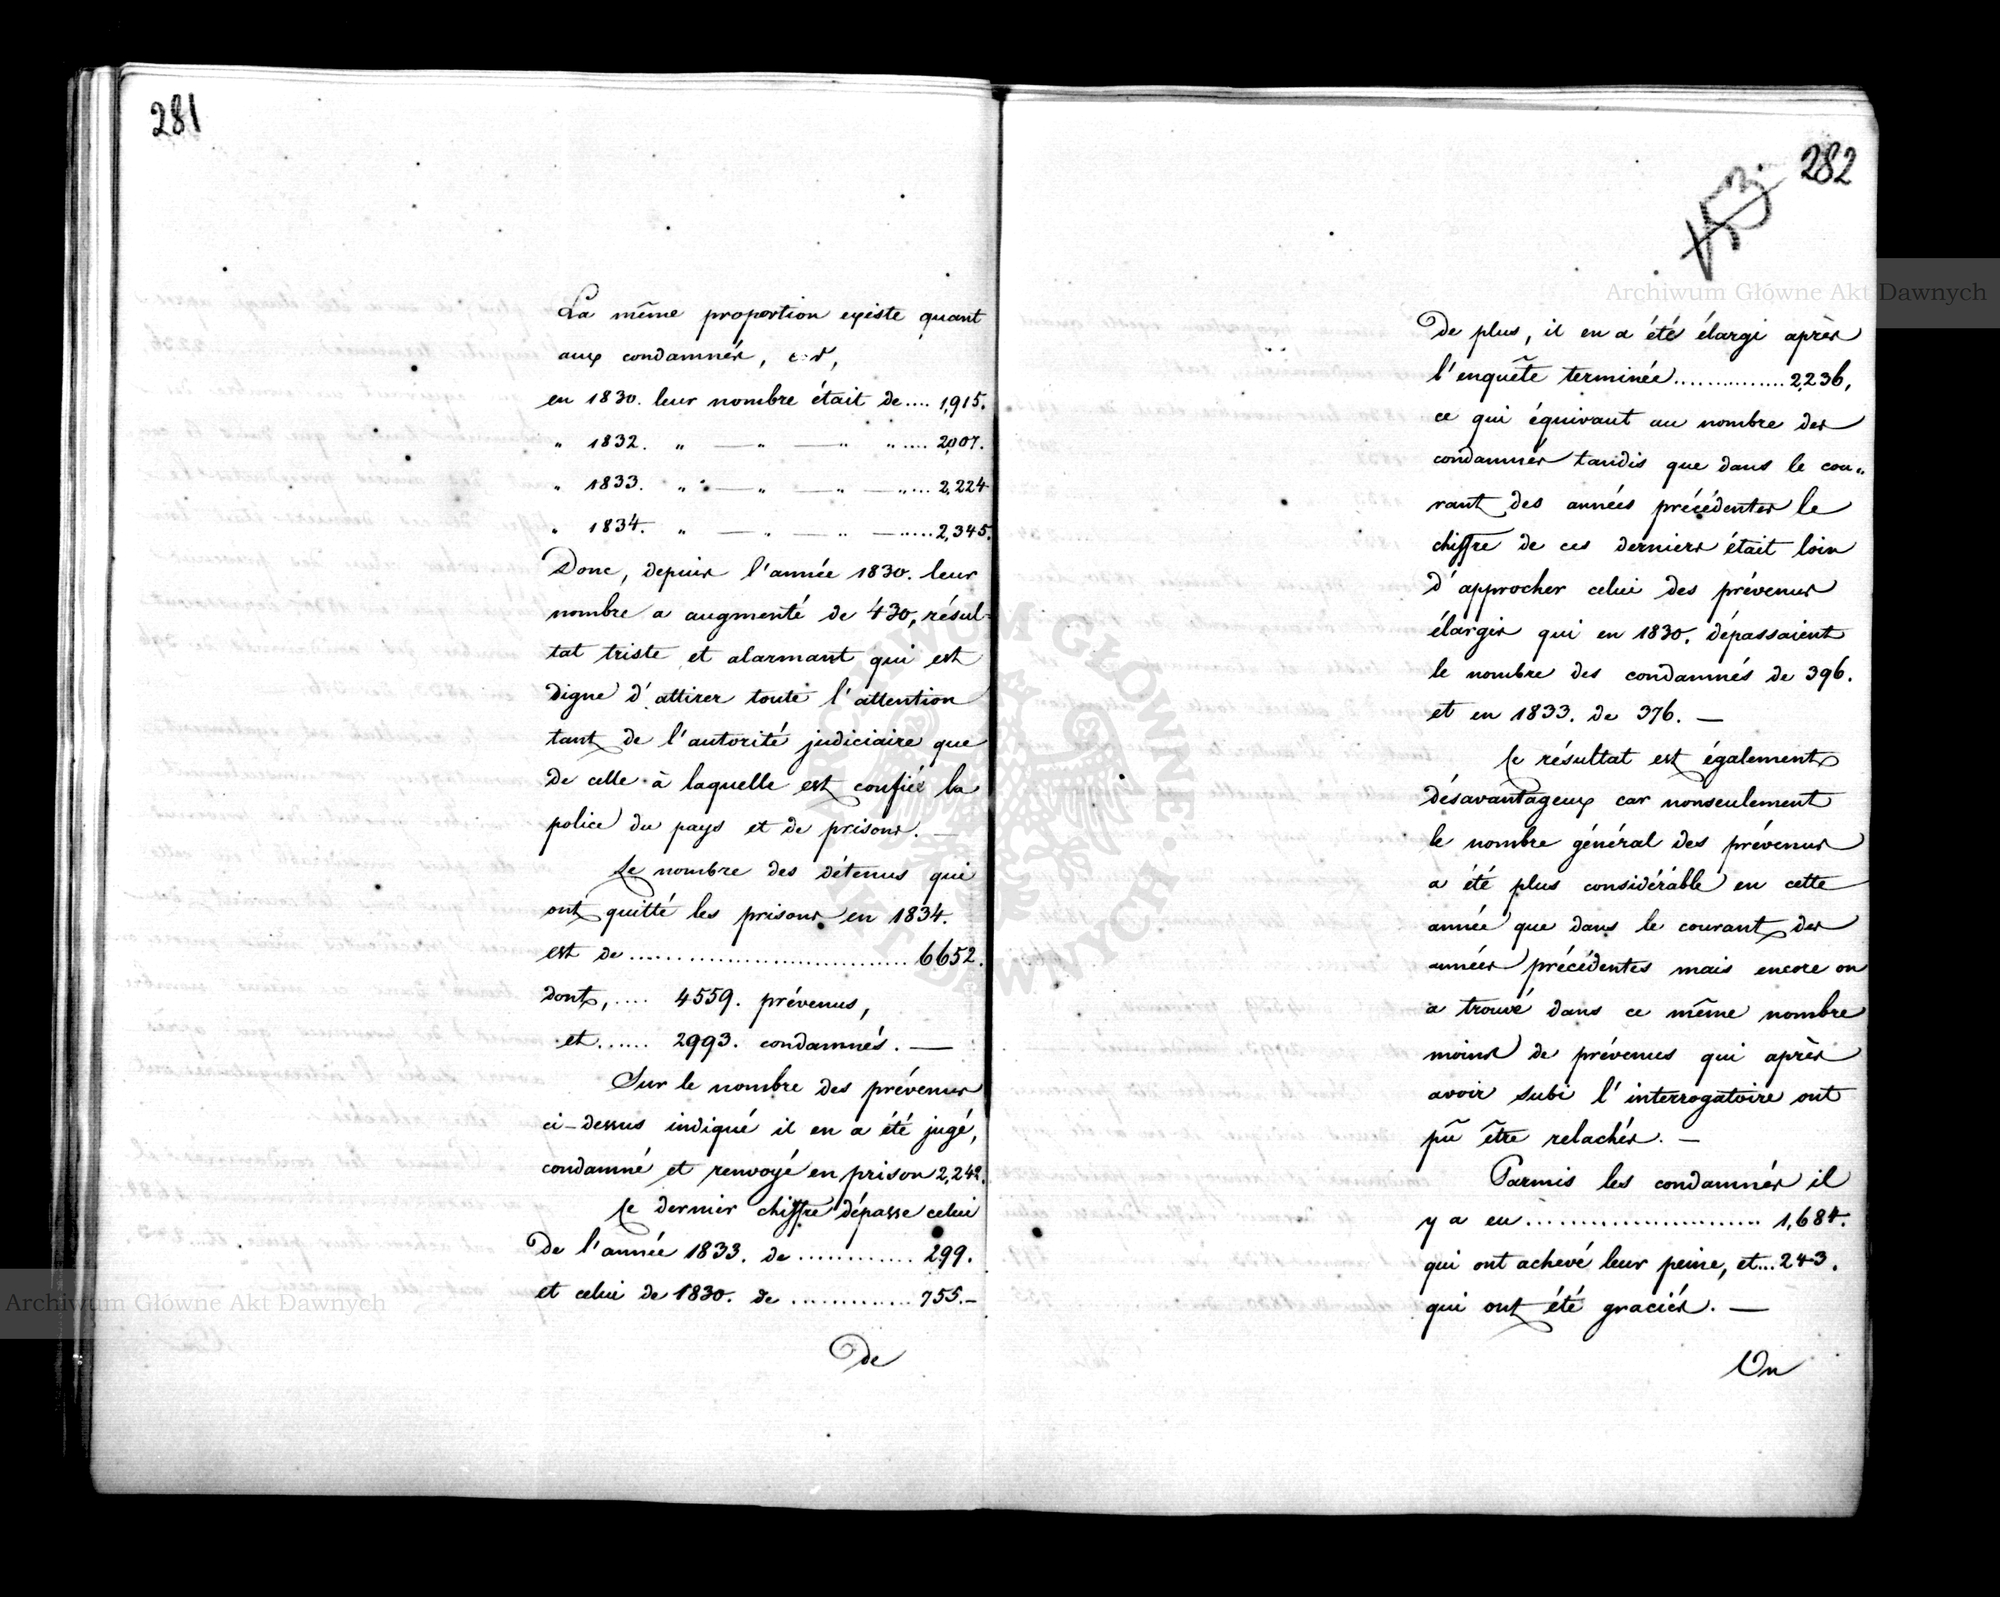 281
La même proportion existe quant
aux condamnés, car,
en 1830. leur nombre était de.... 1,915.
" 1832. " — " — " " .... 2,007.
" 1833. " — " — " — " .... 2,224
" 1834. " — " — " — " ..... 2,345.
Donc, depuis l'année 1830. leur
nombre a augmenté de 430, résul-
tat triste et alarmant qui est
digne d'attirer toute l'attention
tant de l'autorité judiciaire que
de celle à laquelle est confiée la
police du pays et de prisons. —
Le nombre des détenus qui
ont quitté les prisons en 1834.
est de .............................. 6652.
dont, .... 4559. prévenus,
et ...... 2993. condamnés. —
Sur le nombre des prévenus
ci-dessus indiqué il en a été jugé,
condamné et renvoyé en prison 2,242.
Ce dernier chiffre dépasse celui
De l'année 1833. de ............ 299.
et celui de 1830. de ............. 755.—
De
282
De plus, il en a été élargi après
l'enquête terminée............... 2,236,
ce qui équivaut au nombre des
condamnés tandis que dans le cou„
rant des années précédentes le
chiffre de ces derniers était loin
d'approcher celui des prévenus
élargis qui en 1830. dépassaient
le nombre des condamnés de 396.
et en 1833. de 376. —
Ce résultat est également
désavantageux car nonseulement
le nombre général des prévenus
a été plus considérable en cette
année que dans le courant des
années précédentes mais encore on
a trouvé dans ce même nombre
moins de prévenus qui après
avoir subi l'interrogatoire ont
pû être relachés. —
Parmis les condamnés il
y a eu ........................ 1,684.
qui ont achevé leur peine, et... 243.
qui ont été graciés. —
On
Archiwum Główne Akt Dawnych
Archiwum Główne Akt Dawnych
ARCHIWUM GŁÓWNE AKT DAWNYCH